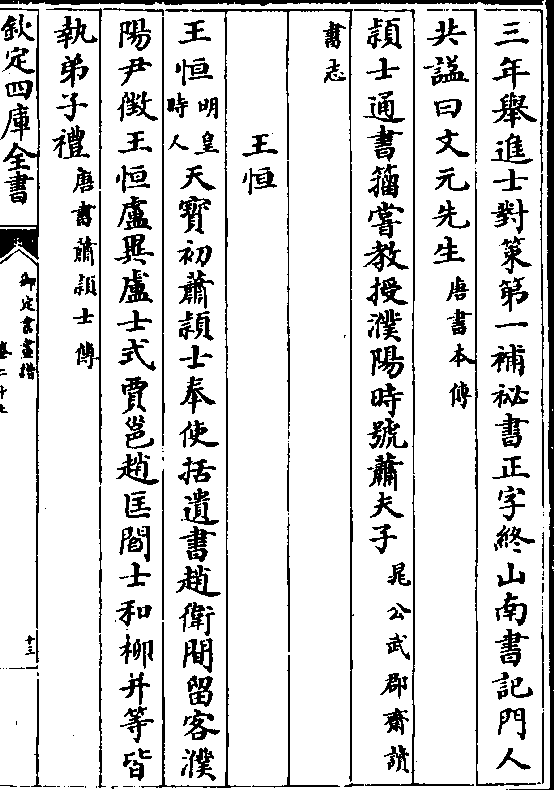 三年舉進士對策第一補祕書正字終山南書記門人
共謚曰文元先生唐書本傳
頴士通書籀嘗教授濮陽時號蕭夫子晁公武郡齋讀
書志
王恒
王恒明皇時人天寶初蕭頴士奉使括遺書趙衛間留客濮
陽尹徵王恒盧異盧士式賈邕趙匡閻士和柳并等皆
執弟子禮唐書蕭頴士傳
欽定四庫全書
御定書畫譜
卷二十七
十三